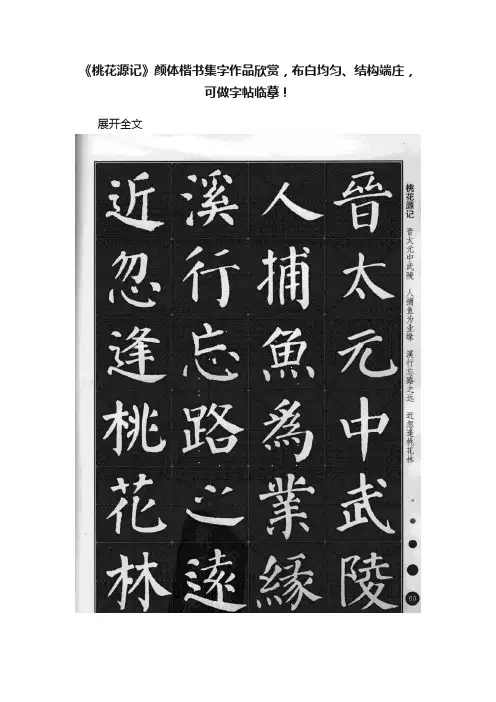 《桃花源记》颜体楷书集字作品欣赏，布白均匀、结构端庄，
可做字帖临摹！
展开全文
晉太元中武陵
人捕魚爲業緣
溪行忘路之遠
近忽逢桃花林
桃花源记 晋太元中武陵 人捕鱼为业缘 溪行忘路之远 近忽逢桃花林